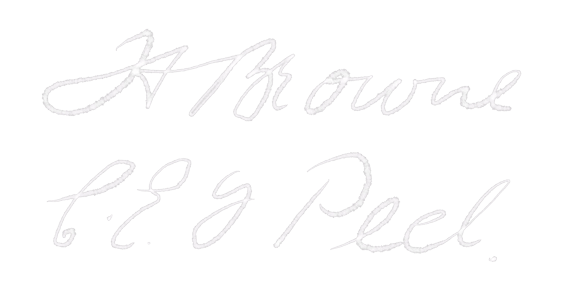 H Browne
C. E. G Peel.